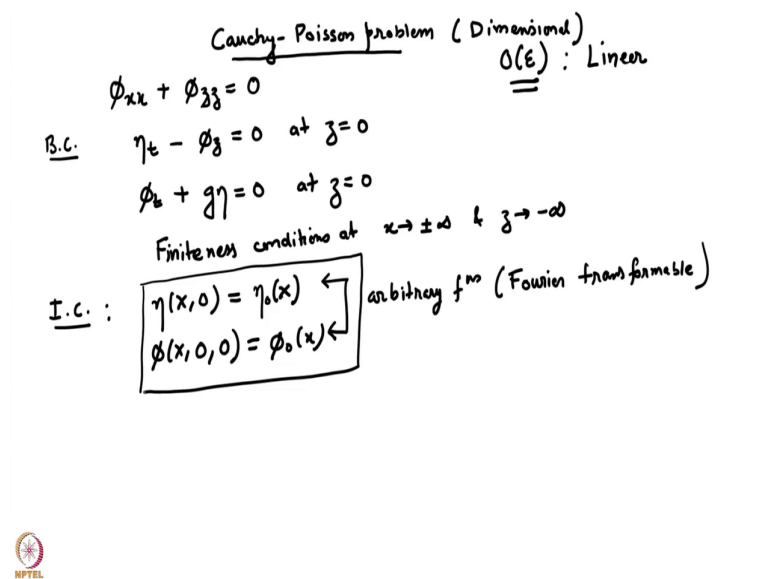 Cauchy-Poisson problem (Dimensional)
O(ε) : Linear
ϕₓₓ + ϕ_zz = 0
B.C. ηₜ - ϕ_z = 0 at z=0
ϕₜ + gη = 0 at z=0
Finiteness conditions at x→ ±∞ & z→ -∞
I.C. : η(x,0) = η₀(x) arbitrary fⁿˢ (Fourier transformable)
ϕ(x,0,0) = ϕ₀(x)
NPTEL